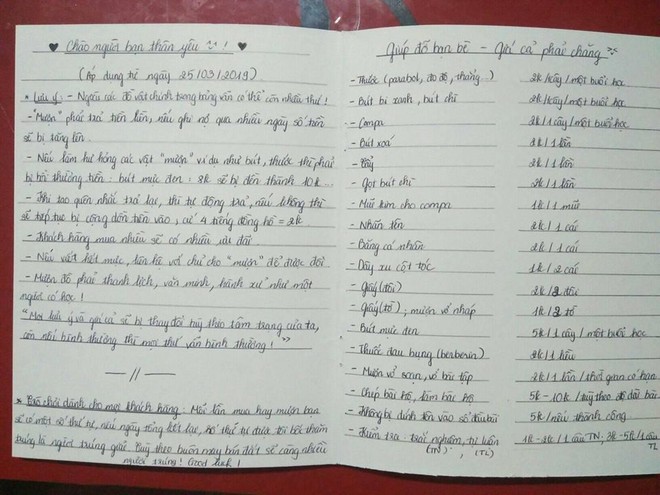 ♥ Chào người bạn thân yêu ! ♥
(Áp dụng từ ngày 25/03/2019)
* Lưu ý: - Ngoài các đồ vật chính trong bảng vẫn có thể còn nhiều thứ!
- "Mượn" phải trả tiền liền, nếu ghi nợ quá nhiều ngày số tiền
sẽ bị tăng lên.
- Nếu làm hư hỏng các vật "mượn" ví dụ như bút, thước thì phải
bị bồi thường tiền: bút mực đen: 8k sẽ bị đền thành 10k...
- Khi tao quên nhắc trả lại, thì tự động trả, nếu không thì
sẽ tiếp tục bị cộng dồn tiền vào, cứ 4 tiếng đồng hồ = 2k.
- Khách hàng mua nhiều sẽ có nhiều ưu đãi.
- Nếu viết hết mực, liên hệ với chủ cho "mượn" để được đổi.
- Mượn đồ phải thanh lịch, văn minh, hành xử như một
người có học!
"Mọi lưu ý và giá cả sẽ bị thay đổi tuỳ theo tâm trạng của ta,
còn nói bình thường thì mọi thứ vẫn bình thường!"
—//—
* Trò chơi dành cho mọi khách hàng: Mỗi lần mua hay mượn bạn
sẽ có một số thứ tự, nếu ngày tổng kết lại, số thứ tự được tôi bốc thăm
trúng là người trúng giải. Tuỳ theo buôn may bán đắt sẽ càng nhiều
người trúng! Good luck!
Giúp đỡ bạn bè - Giá cả phải chăng
- Thước (parabol, đo độ, thẳng...) 2k/cây/một buổi học
- Bút bi xanh, bút chì 2k/1 cây/một buổi học
- Compa 2k/1 cây/một buổi học
- Bút xoá 2k/1 lần
- Tẩy 2k/1 lần
- Gọt bút chì 2k/1 lần
- Mũi kim cho compa 1k/1 mũi
- Nhãn tên 2k/1 cái
- Băng cá nhân 2k/1 cái
- Dây xu cột tóc 1k/2 cái
- Giấy (đôi) 2k/2 đôi
- Giấy (tờ), mượn vở nháp 1k/2 tờ
- Bút mực đen 5k/1 cây/một buổi học
- Thuốc đau bụng (berberin) 2k/1 liều
- Mượn vở soạn, vở bài tập 2k/1 lần/thời gian có hạn
- Chép bài hộ, làm bài hộ 5k - 10k/tuỳ theo độ dài bài
- Không bị dính tên vào sổ đầu bài 5k/nếu thành công
- Kiểm tra: trắc nghiệm, tự luận 1k-2k/1 câu TN, 3k-5k/1 câu
(TN), (TL) TL